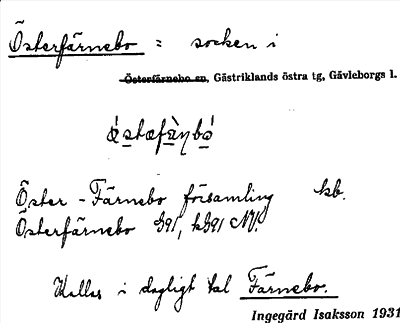 Österfärnebo = socken i
Österfärnebo sn, Gästriklands östra tg, Gävleborgs l.
Öster-Färnebo församling kb.
Österfärnebo
Kallas i dagligt tal Färnebo.
Ingegärd Isaksson 1931